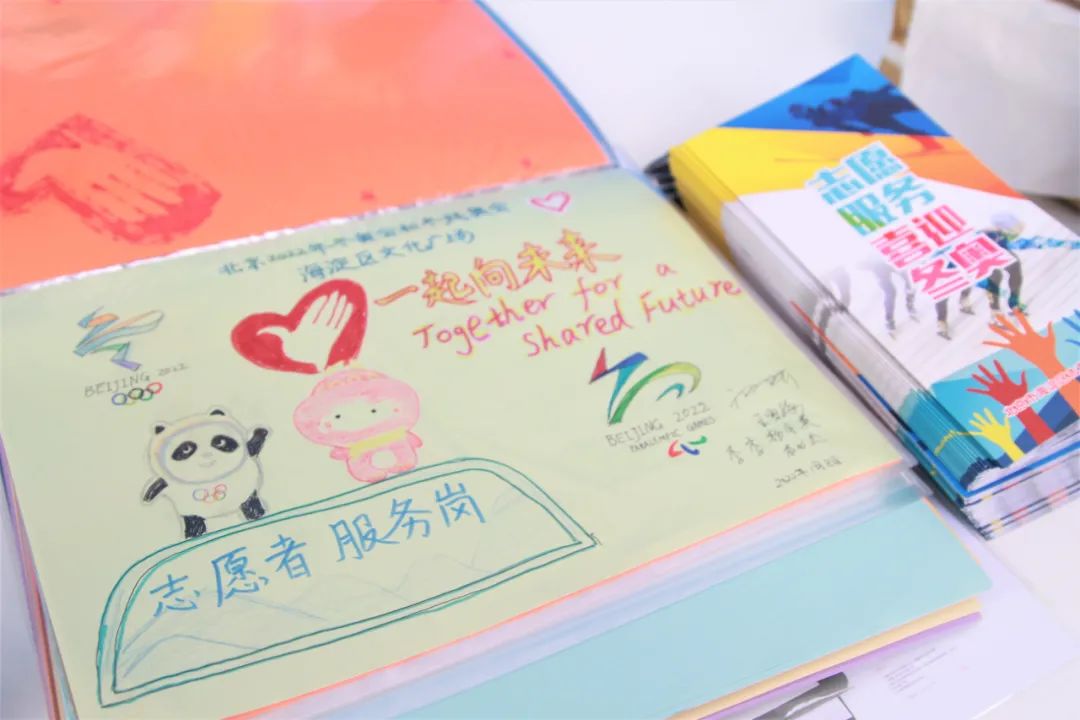 北京2022年冬奥会和冬残奥会
海淀区文化广场
一起向未来
Together for a
Shared Future
BEIJING 2022
BEIJING 2022
PARALYMPIC GAMES
志愿者 服务岗
志愿
服务
喜迎
冬奥